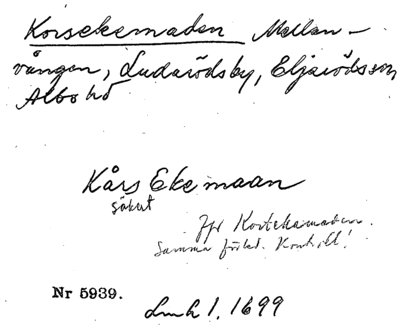 Korsekemaden Mellan-
vången, Ludarödsby, Eljaröds sn,
Albo hd
Kårs Ekemaan
säkert
Jfr Korsekamaden.
Samma förkl. Kontroll!
Nr 5939.
Lmh 1. 1699